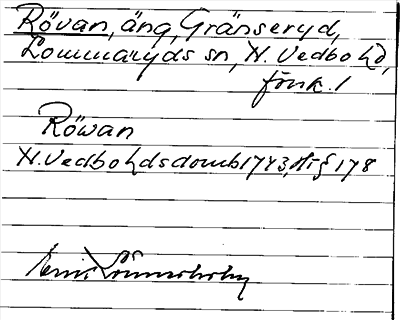 Rövan, äng, Gränseryd,
Lommaryds sn, N. Vedbo hd,
Jönk. l
Röwan
N. Vedbo hds domb 1743, § 178